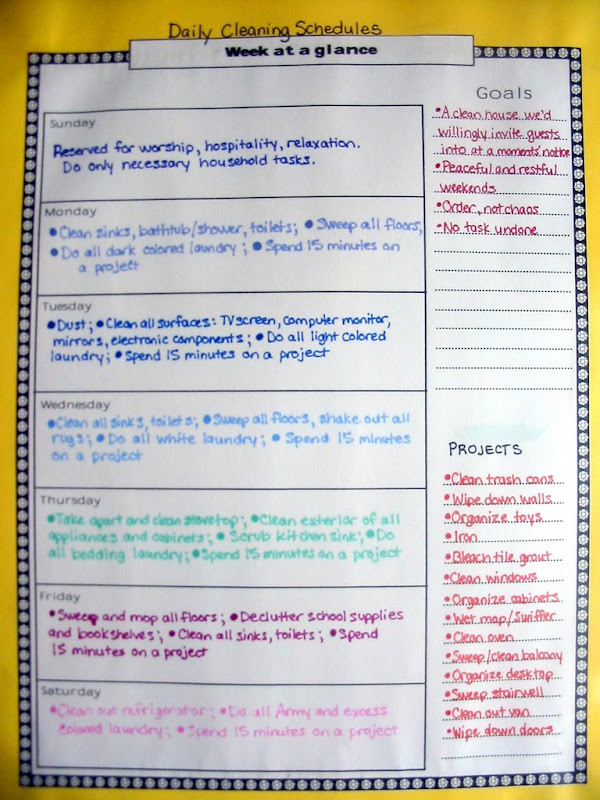 Daily Cleaning Schedules
Week at a glance
Sunday
Reserved for worship, hospitality, relaxation.
Do only necessary household tasks.
Monday
• Clean sinks, bathtub/shower, toilets; • Sweep all floors;
• Do all dark colored laundry; • Spend 15 minutes on
a project
Tuesday
• Dust; • Clean all surfaces: TV screen, computer monitor,
mirrors, electronic components; • Do all light colored
laundry; • Spend 15 minutes on a project
Wednesday
• Clean all sinks, toilets; • Sweep all floors, shake out all
rugs; • Do all white laundry; • Spend 15 minutes
on a project
Thursday
• Take apart and clean stovetop; • Clean exterior of all
appliances and cabinets; • Scrub kitchen sink; • Do
all bedding laundry; • Spend 15 minutes on a project
Friday
• Sweep and mop all floors; • Declutter school supplies
and bookshelves; • Clean all sinks, toilets; • Spend
15 minutes on a project
Saturday
• Clean out refrigerator; • Do all Army and excess
colored laundry; • Spend 15 minutes on a project
Goals
• A clean house we'd
willingly invite guests
into at a moments' notice
• Peaceful and restful
weekends
• Order, not chaos
• No task undone
PROJECTS
• Clean trash cans
• Wipe down walls
• Organize toys
• Iron
• Bleach tile grout
• Clean windows
• Organize cabinets
• Wet map/Swiffer
• Clean oven
• Sweep/clean balcony
• Organize desktop
• Sweep stairwell
• Clean out van
• Wipe down doors